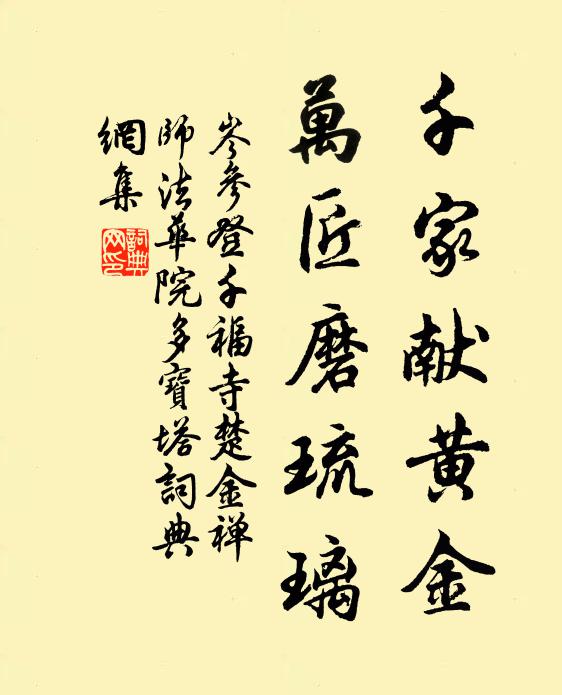 千家献黄金
萬匠磨琉璃
岑參登千福寺楚金禅
師法華院多寶塔詞典
網集
詞典
网印